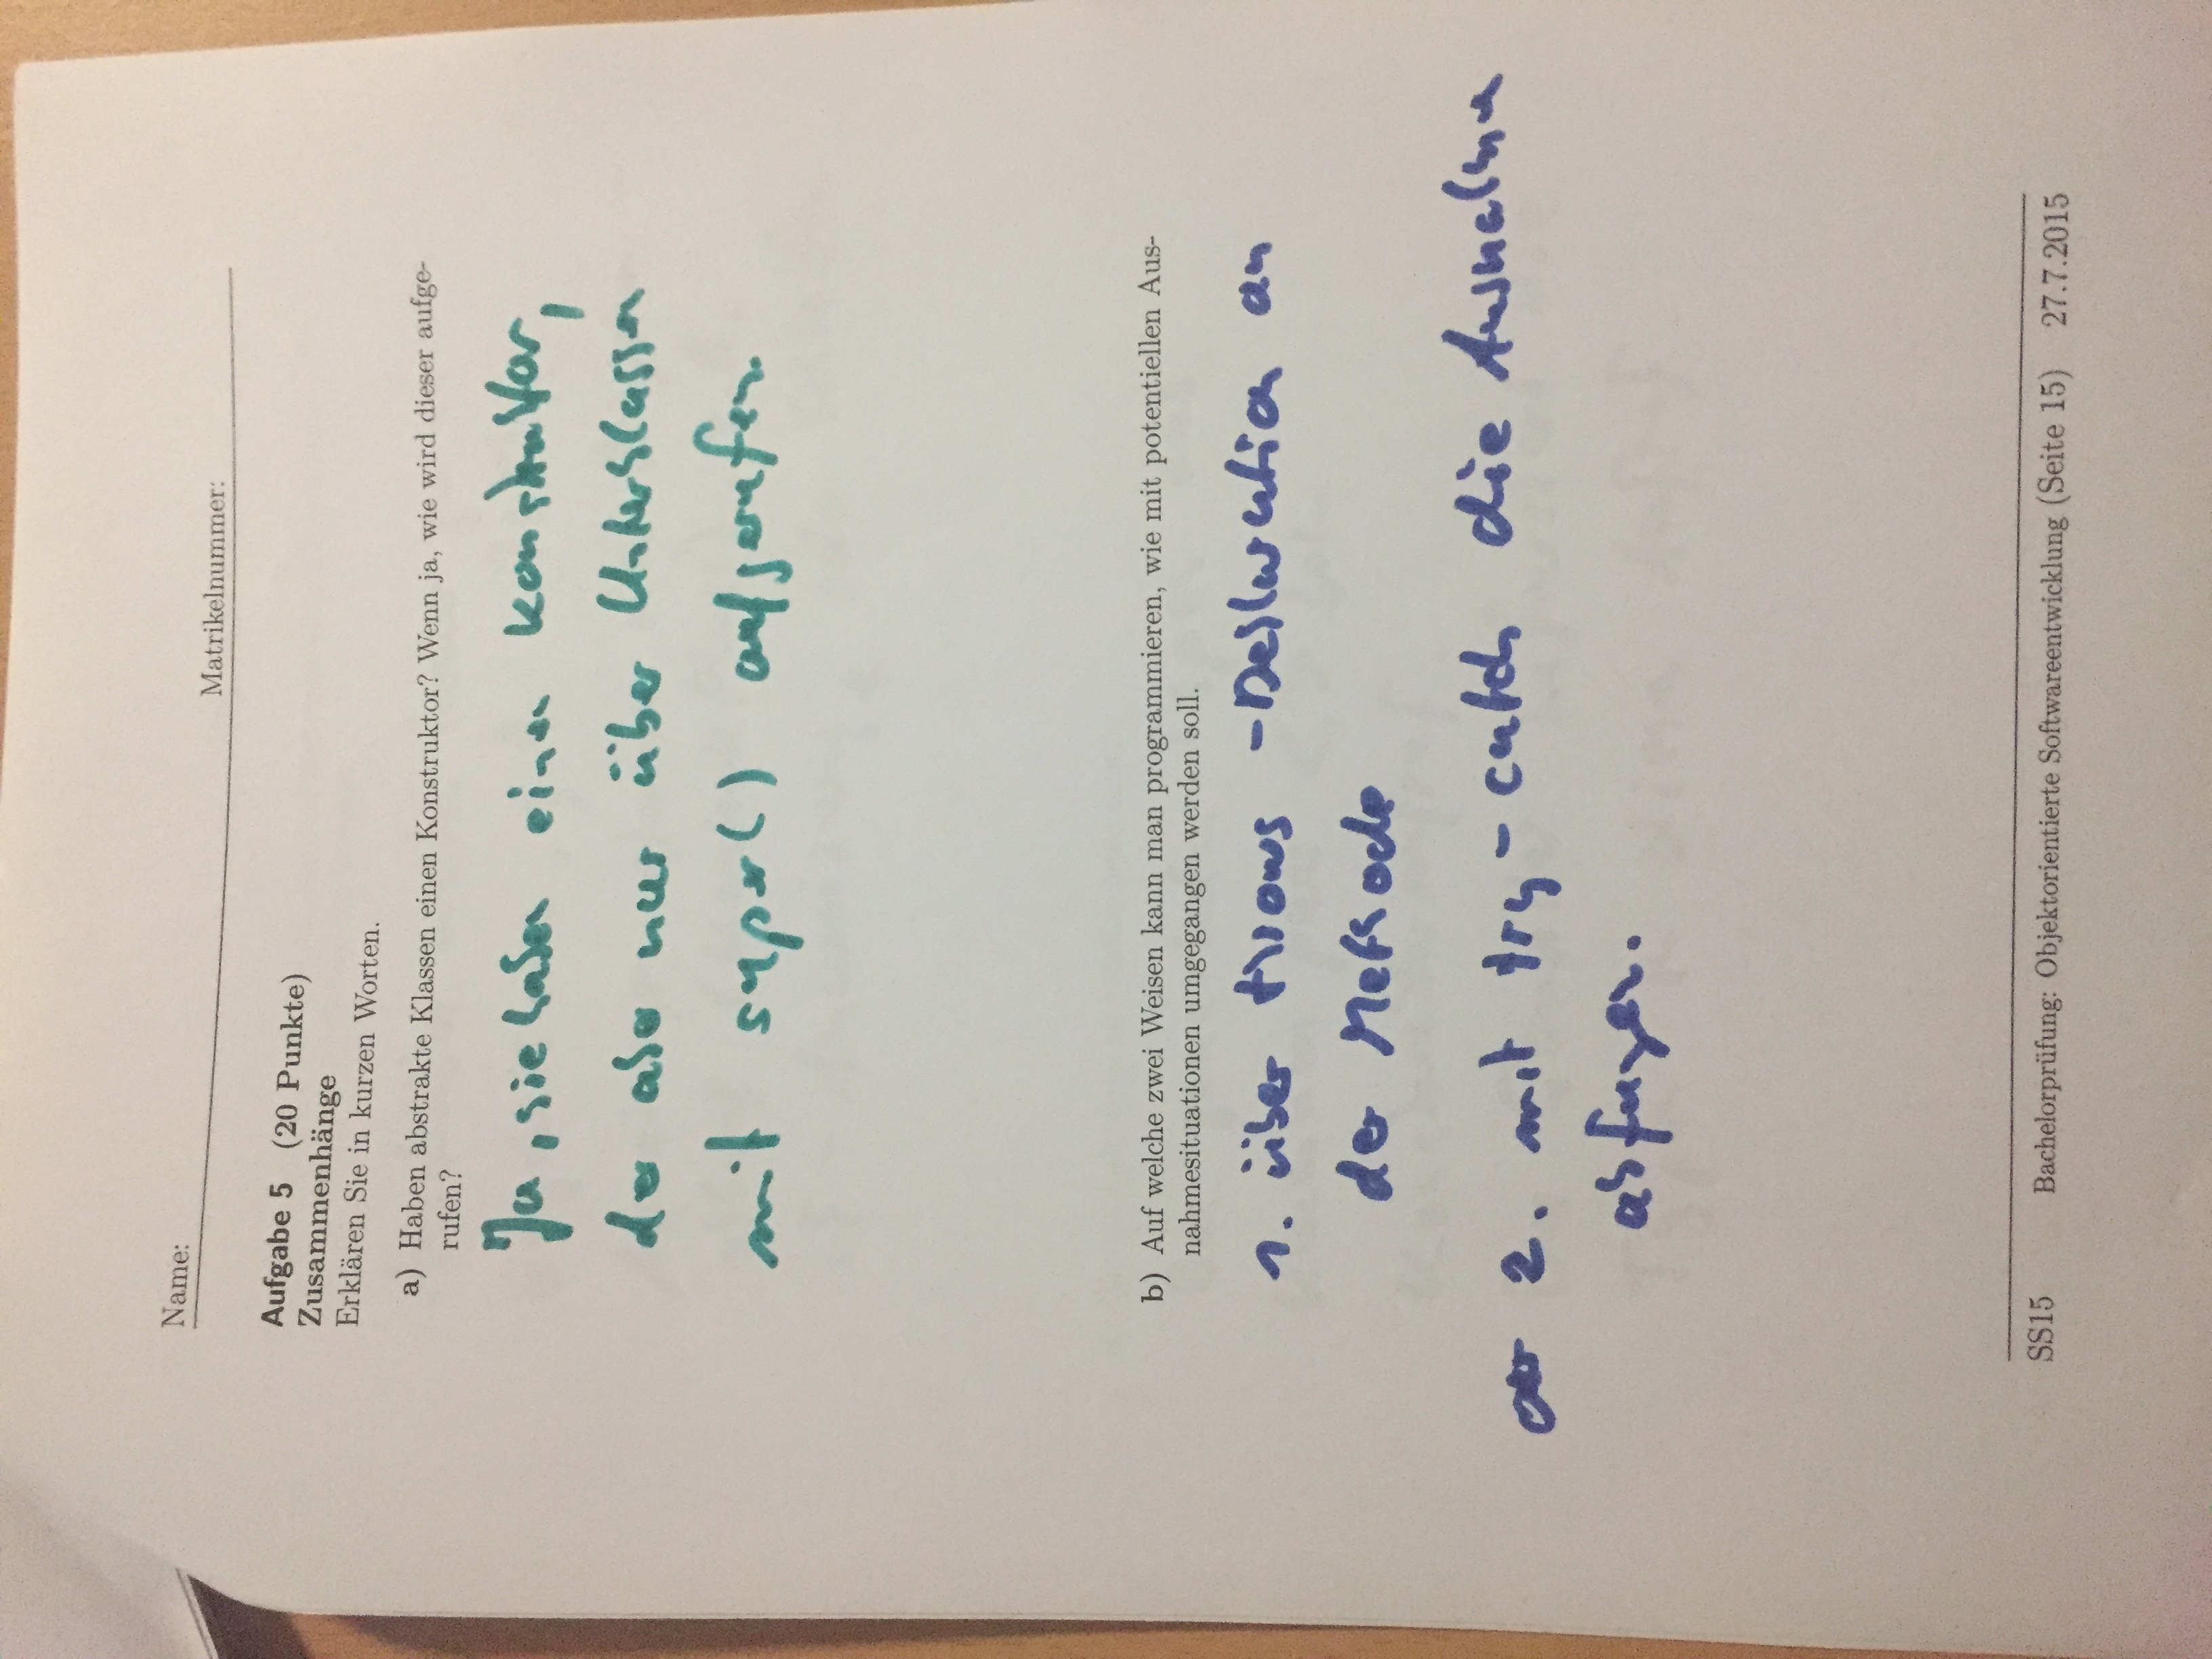 Name:
Matrikelnummer:
Aufgabe 5 (20 Punkte)
Zusammenhänge
Erklären Sie in kurzen Worten.
a) Haben abstrakte Klassen einen Konstruktor? Wenn ja, wie wird dieser aufge-
rufen?
Ja, sie haben einen Konstruktor,
der also nur über Unterklassen
mit super() aufgerufen.
b) Auf welche zwei Weisen kann man programmieren, wie mit potentiellen Aus-
nahmesituationen umgegangen werden soll.
1. über throws -Deklaration an
der Methode
oder 2. mit try-catch die Ausnahme
abfangen.
SS15 Bachelorprüfung: Objektorientierte Softwareentwicklung (Seite 15) 27.7.2015